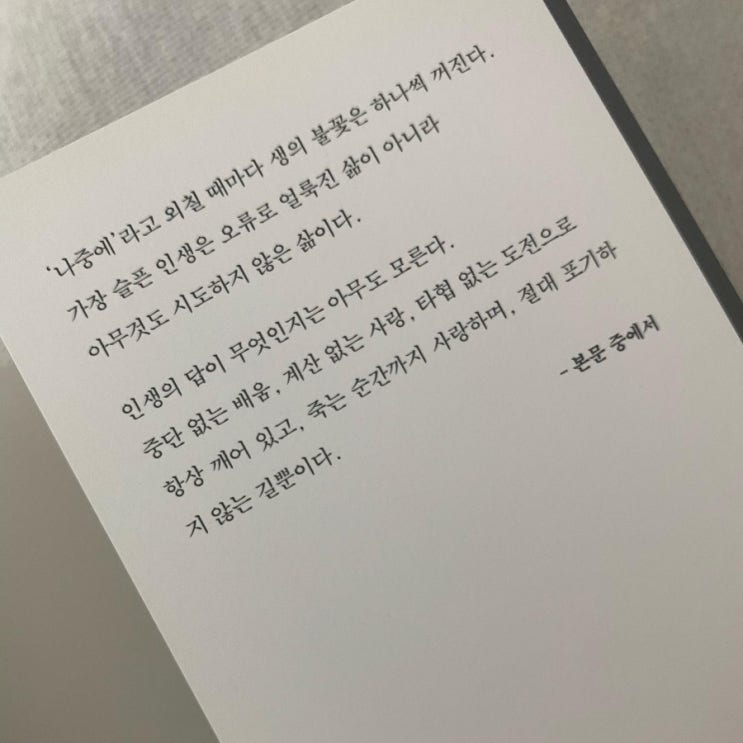 '나중에'라고 외칠 때마다 생의 불꽃은 하나씩 꺼진다.
가장 슬픈 인생은 오류로 얼룩진 삶이 아니라
아무것도 시도하지 않은 삶이다.
인생의 답이 무엇인지는 아무도 모른다.
중단 없는 배움, 계산 없는 사랑, 타협 없는 도전으로
항상 깨어 있고, 죽는 순간까지 사랑하며, 절대 포기하
지 않는 길뿐이다.
- 본문 중에서